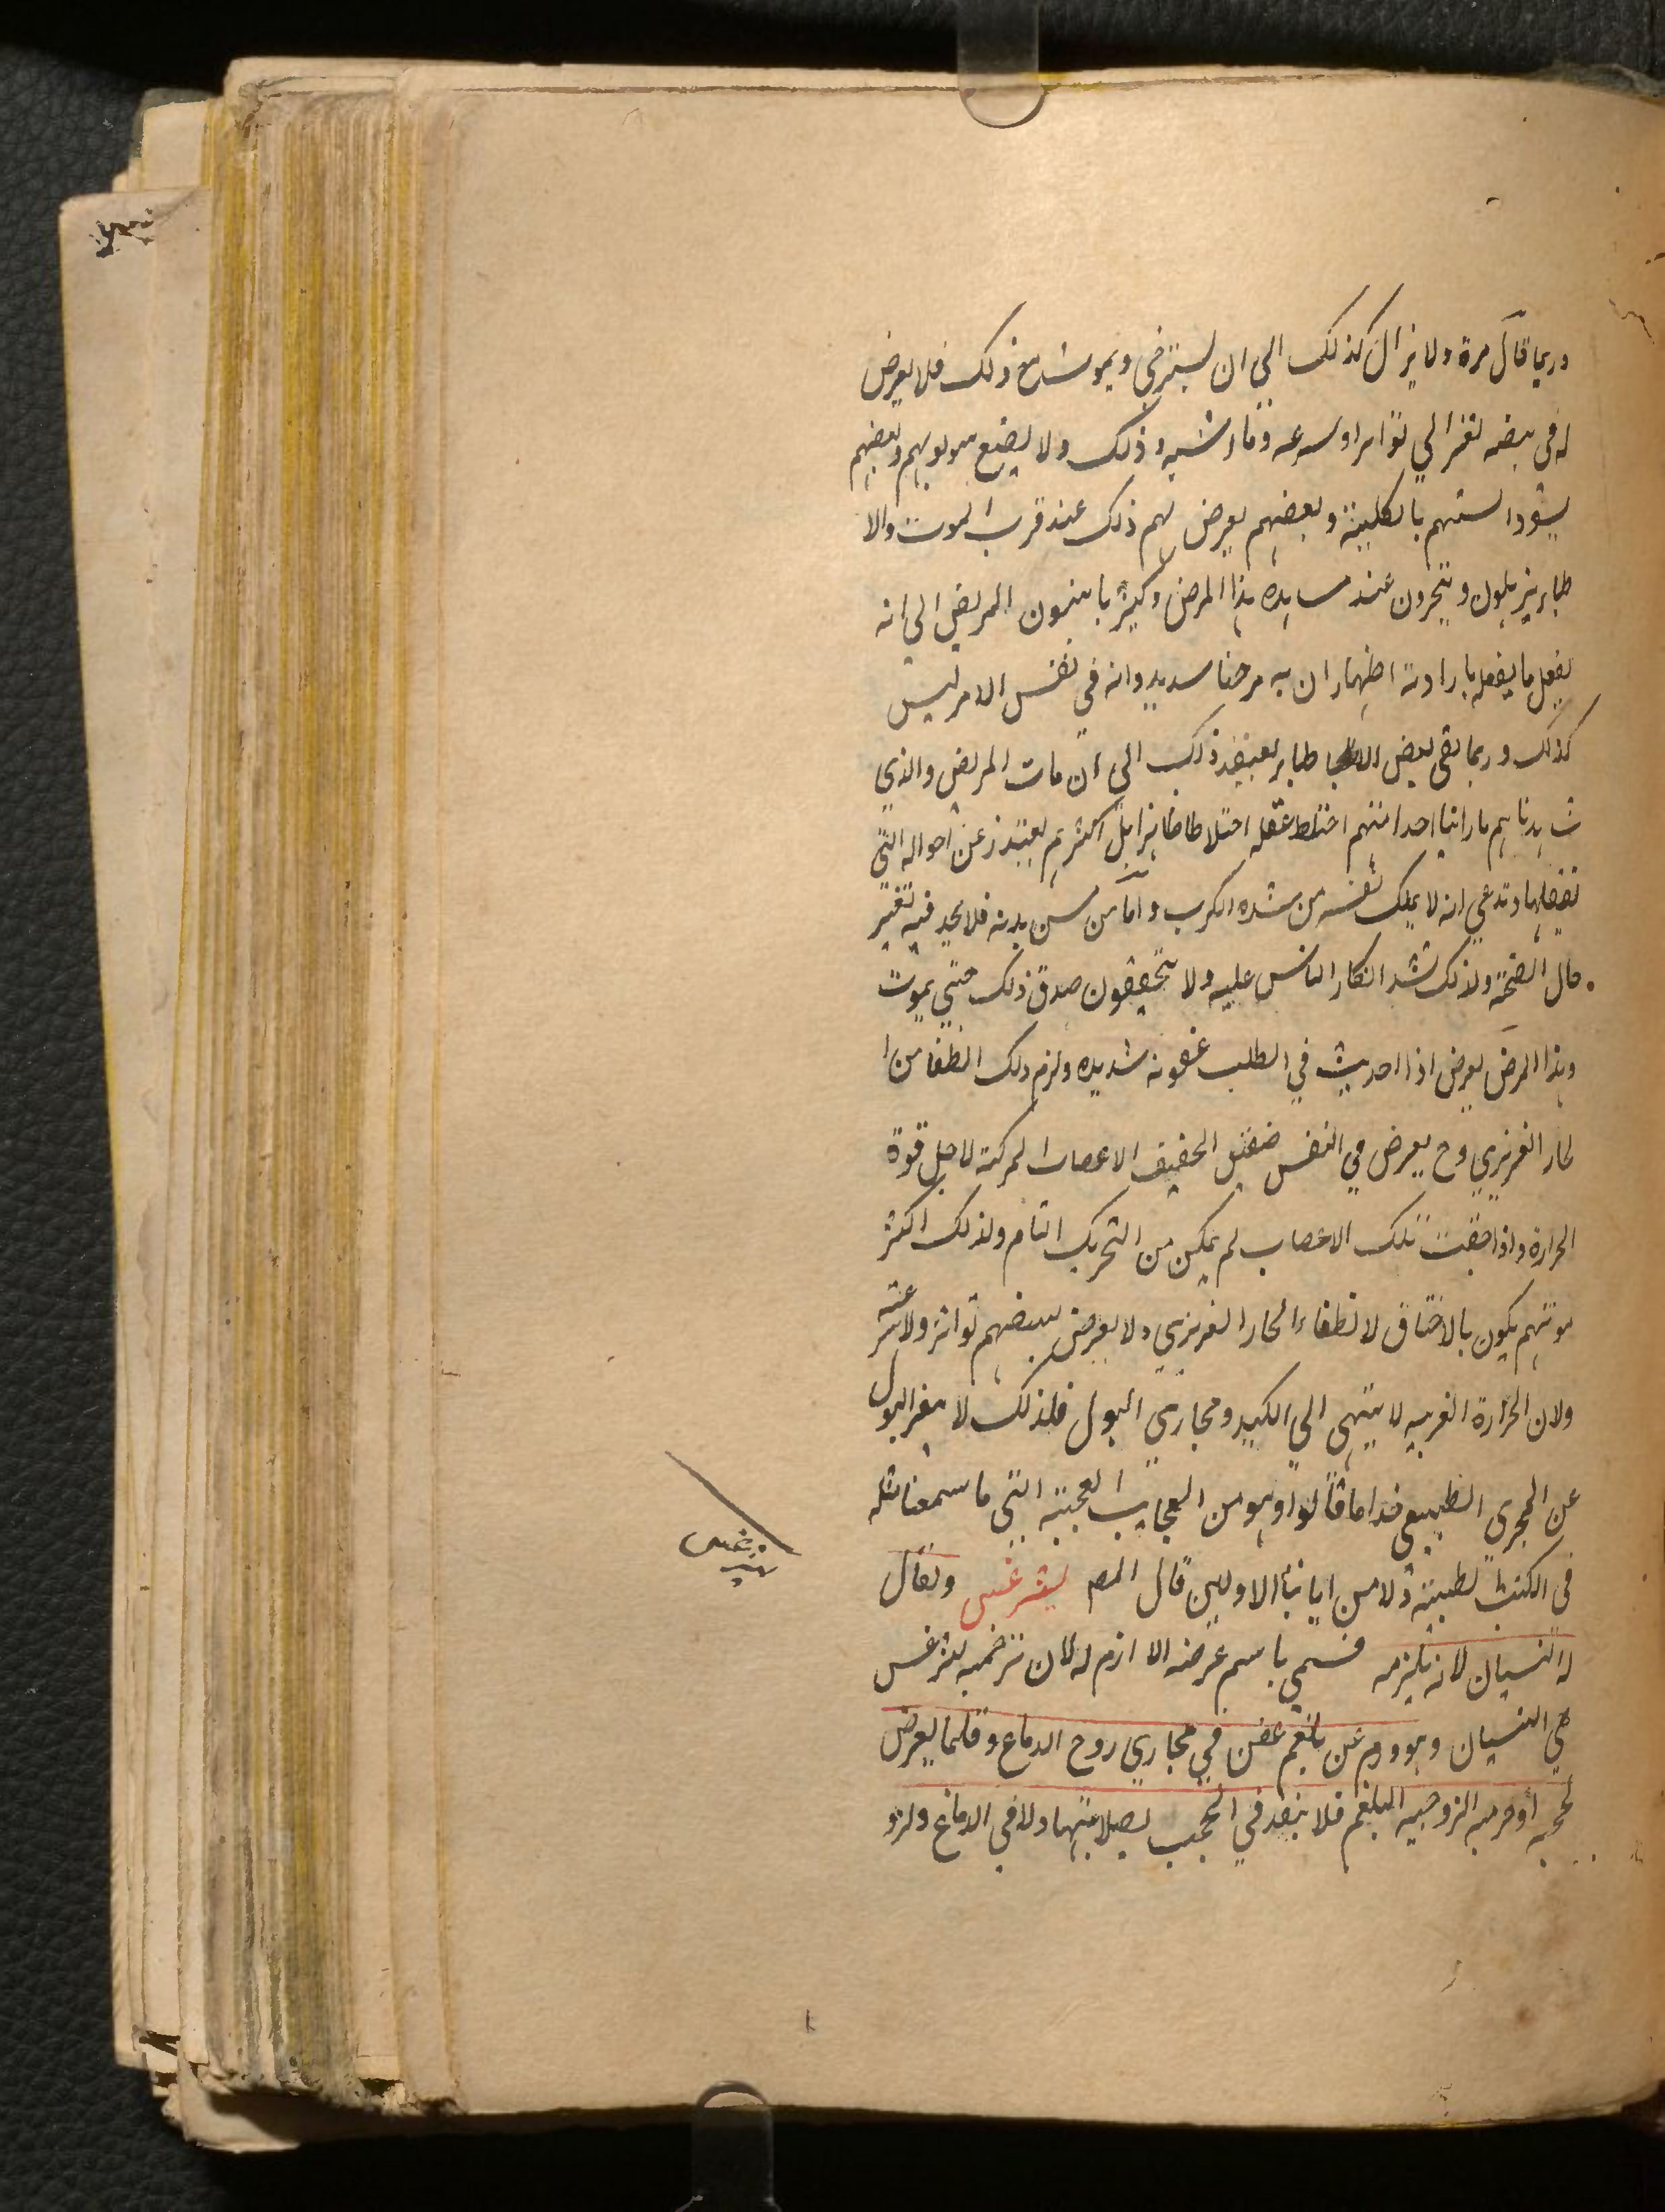 وربما قال مرة ولا يزال كذلك الي ان يسترخي ويموت مع ذلك فلا يعرض
له في نبضه تغير الي تواتر او سرعه وما اشبه ذلك ولا يصبغ بولهم وبعضهم
يسود السنتهم بالكلية وبعضهم يعرض لهم ذلك عند قرب الموت والا
طبا يذهلون ويتحيرون عند مشاهده هذا المرض وكثيرا ما ينسبون المريض الي انه
يفعل ما يفعله بارادته اظهارا ان به مرضا شديدا وانه في نفس الامر ليس
كذلك وربما بقي بعض الا طبا يعتقد ذلك الي ان مات المريض والذي
شاهدناهم ما راينا احدا منهم اختلط عقله اختلاطا ظاهرا بل اكثرهم يعتذر عن احواله التي
يفعلها ويدعي انه لا يملك نفسه من شده الكرب واما من مس بدنه فلا يجد فيه تغير
حال الصحة ولذلك يشتد انكار الناس عليه ولا يتحققون صدق ذلك حتي يموت
وهذا المرض يعرض اذا احدث في القلب عفونه شديده ولزم ذلك انطفا من ا
لحار الغريزي وح يعرض في النفس ضيق لتجفيف الاعصاب المحركة لاجل قوة
الحرارة واذا جفت تلك الاعصاب لم يمكن من التحريك التام ولذلك اكثر
موتهم يكون بالاختناق لانطفاء الحار الغريزي ولا يعرض لنبضهم تواتر ولا سرعته
ولان الحرارة الغريبه لا ينتهي الي الكبد ومجاري البول فلذلك لا يتغير البول
عن المجري الطبيعي هذا ما قالوا وهو من العجايب العجيبة التي ما سمعنا مثله
في الكتب الطبية ولا من ابائنا الاولين قال المص ليثرغس ويقال
له النسيان لانه يلزمه فسمي باسم عرضه اللازم له لان ترجمه ليثرغس
هي النسيان وهو ورم عن بلغم عفن في مجاري روح الدماغ وقلما يعرض
لحجبه او جرمه للزوجيه البلغم فلا ينفذ في الحجب لصلابتها ولا في الدماغ ولزو
ليثرغس